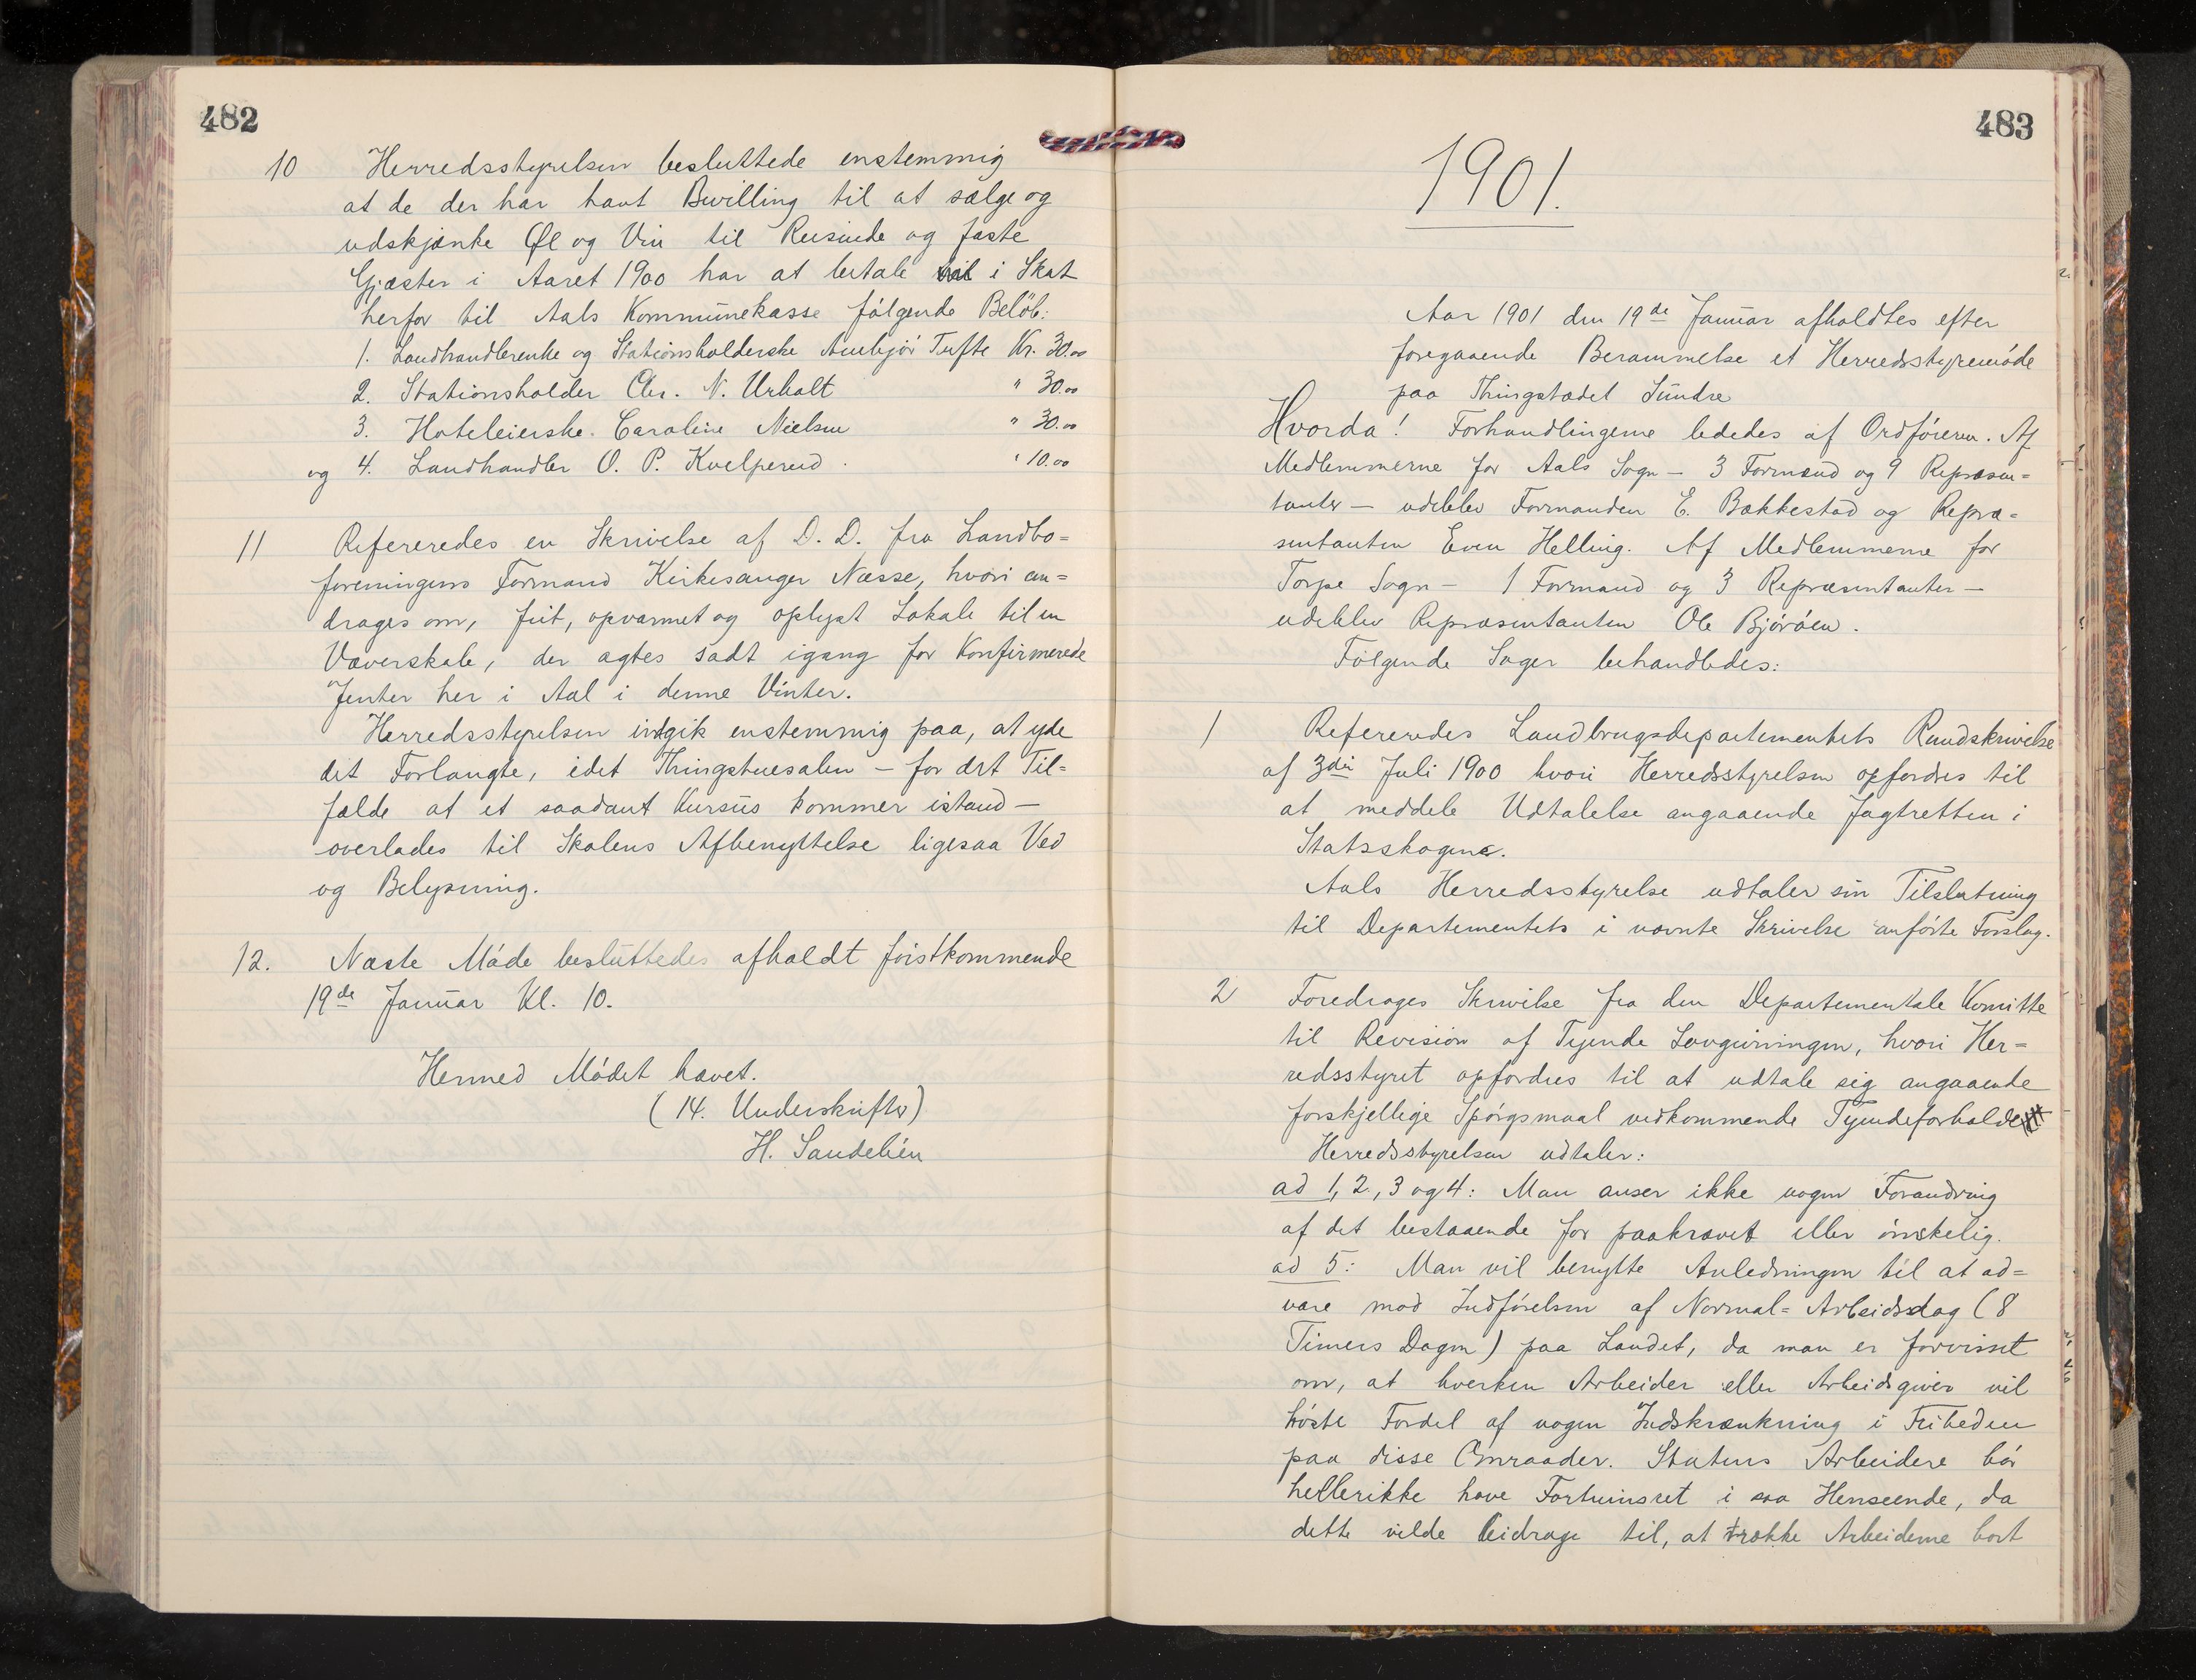 482
10 Herredsstyrelsen besluttede enstemmig
at de der har havt Bevilling til at sælge og
udskjænke Øl og Vin til Reisende og faste
Gjæster i Aaret 1900 har at betale i Skat
herfor til Aals Kommunekasse følgende Beløb:
1. Landhandlerenke og Stationsholderske Tufte Kr. 30.00
2. Stationsholder Chr. N. Urholt " 30.00
3. Hoteleierske Caroline Nielsen " 30.00
og 4. Landhandler O. P. Kvelprud " 10.00
11 Refereredes en Skrivelse af D. D. fra Landbo=
foreningens Formand Kirkesanger Næsse, hvori an=
drages om, frit, opvarmet og oplyst Lokale til en
Væverskole, der agtes sadt igang for Konfirmerede
Jenter her i Aal i denne Vinter.
Herredsstyrelsen indgik enstemmig paa, at yde
det Forlangte, idet Thingstuesalen – for det Til=
fælde at et saadant Kursus kommer istand –
overlades til Skolens Afbenyttelse ligesaa Ved
og Belysning.
12. Næste Møde besluttedes afholdt førstkommende
19de Januar Kl. 10.
Hermed Mødet hævet.
(14. Underskrifter)
H. Sandelien
483
1901.
Aar 1901 den 19de Januar afholdtes efter
foregaaende Berammelse et Herredsstyremøde
paa Thingstedet Sundre
Hvorda! Forhandlingerne lededes af Ordføreren. Af
Medlemmerne for Aals Sogn – 3 Formænd og 9 Repræsen=
tanter – udeblev Formanden E. Bakkestad og Repræ=
sentanten Even Helling. Af Medlemmerne for
Torpe Sogn – 1 Formand og 3 Repræsentanter –
udeblev Repræsentanten Ole Bjøröen.
Følgende Sager behandledes:
1 Refereredes Landbrugsdepartementets Rundskrivelse
af 3die Juli 1900 hvori Herredsstyrelsen opfordres til
at meddele Udtalelse angaaende Jagtretten i
Statsskogene.
Aals Herredsstyrelse udtaler sin Tilslutning
til Departementets i nævnte Skrivelse anførte Forslag.
2 Foredrages Skrivelse fra den Departementale Komitte
til Revision af Tyende Lovgivningen, hvori Her=
redsstyret opfordres til at udtale sig angaaende
forskjellige Spørgsmaal vedkommende Tyendeforholdet
Herredsstyrelsen udtaler:
ad 1, 2, 3 og 4: Man anser ikke nogen Forandring
af det bestaaende for paakrævet eller ønskelig.
ad 5: Man vil benytte Anledningen til at ad=
vare mod Indførelsen af Normal= Arbeidsdag (8
Timers Dagen) paa Landet, da man er forvisset
om, at hverken Arbeider eller Arbeidsgiver vil
høste Fordel af nogen Indskrænkning i Friheden
paa disse Omraader. Statens Arbeidere bør
hellerikke have Fortrinsret i saa Henseende, da
dette vilde bidrage til, at trække Arbeiderne bort